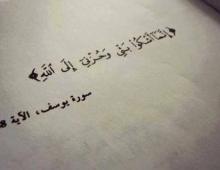 ﴿إِنَّمَا أَشْكُو بَثِّي وَحُزْنِي إِلَى اللَّهِ﴾
سورة يوسف، الآية 8